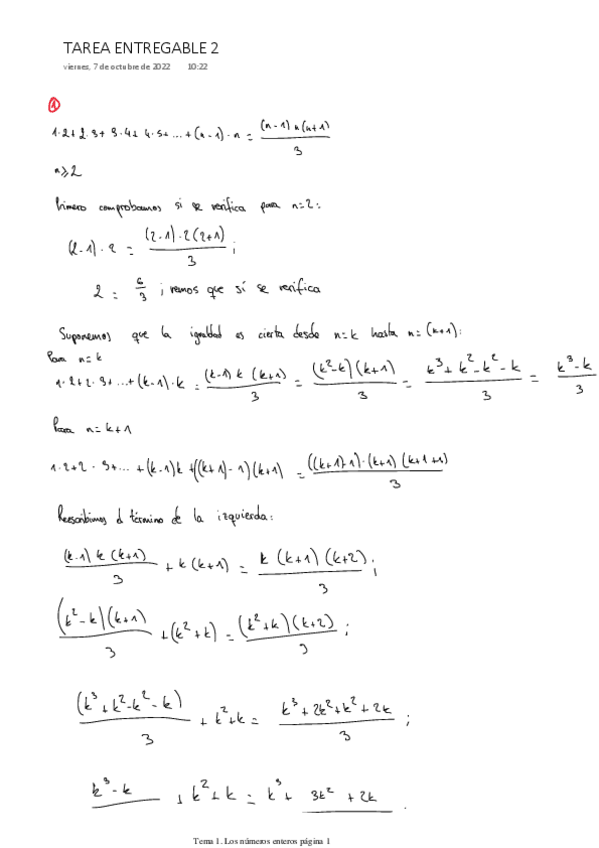 TAREA ENTREGABLE 2
viernes, 7 de octubre de 2022 10:22
1
1·2+2·3+3·4+4·5+...+(n-1)·n = (n-1)n(n+1)/3
n≥2
Primero comprobamos si se verifica para n=2:
(2-1)·2 = (2-1)·2(2+1)/3 ;
2 = 6/3 ; vemos que sí se verifica
Suponemos que la igualdad es cierta desde n=k hasta n=(k+1):
Para n=k
1·2+2·3+...+(k-1)·k = (k-1)k(k+1)/3 = (k²-k)(k+1)/3 = k³+k²-k²-k/3 = k³-k/3
Para n=k+1
1·2+2·3+...+(k-1)k+((k+1)-1)(k+1) = ((k+1)-1)·(k+1)(k+1+1)/3
Reescribimos el término de la izquierda:
(k-1)k(k+1)/3 + k(k+1) = k(k+1)(k+2)/3 ;
(k²-k)(k+1)/3 + (k²+k) = (k²+k)(k+2)/3 ;
(k³+k²-k²-k)/3 + k²+k = k³+2k²+k²+2k/3 ;
k³-k + k²+k = k³+3k²+2k .
Tema 1. Los números enteros página 1